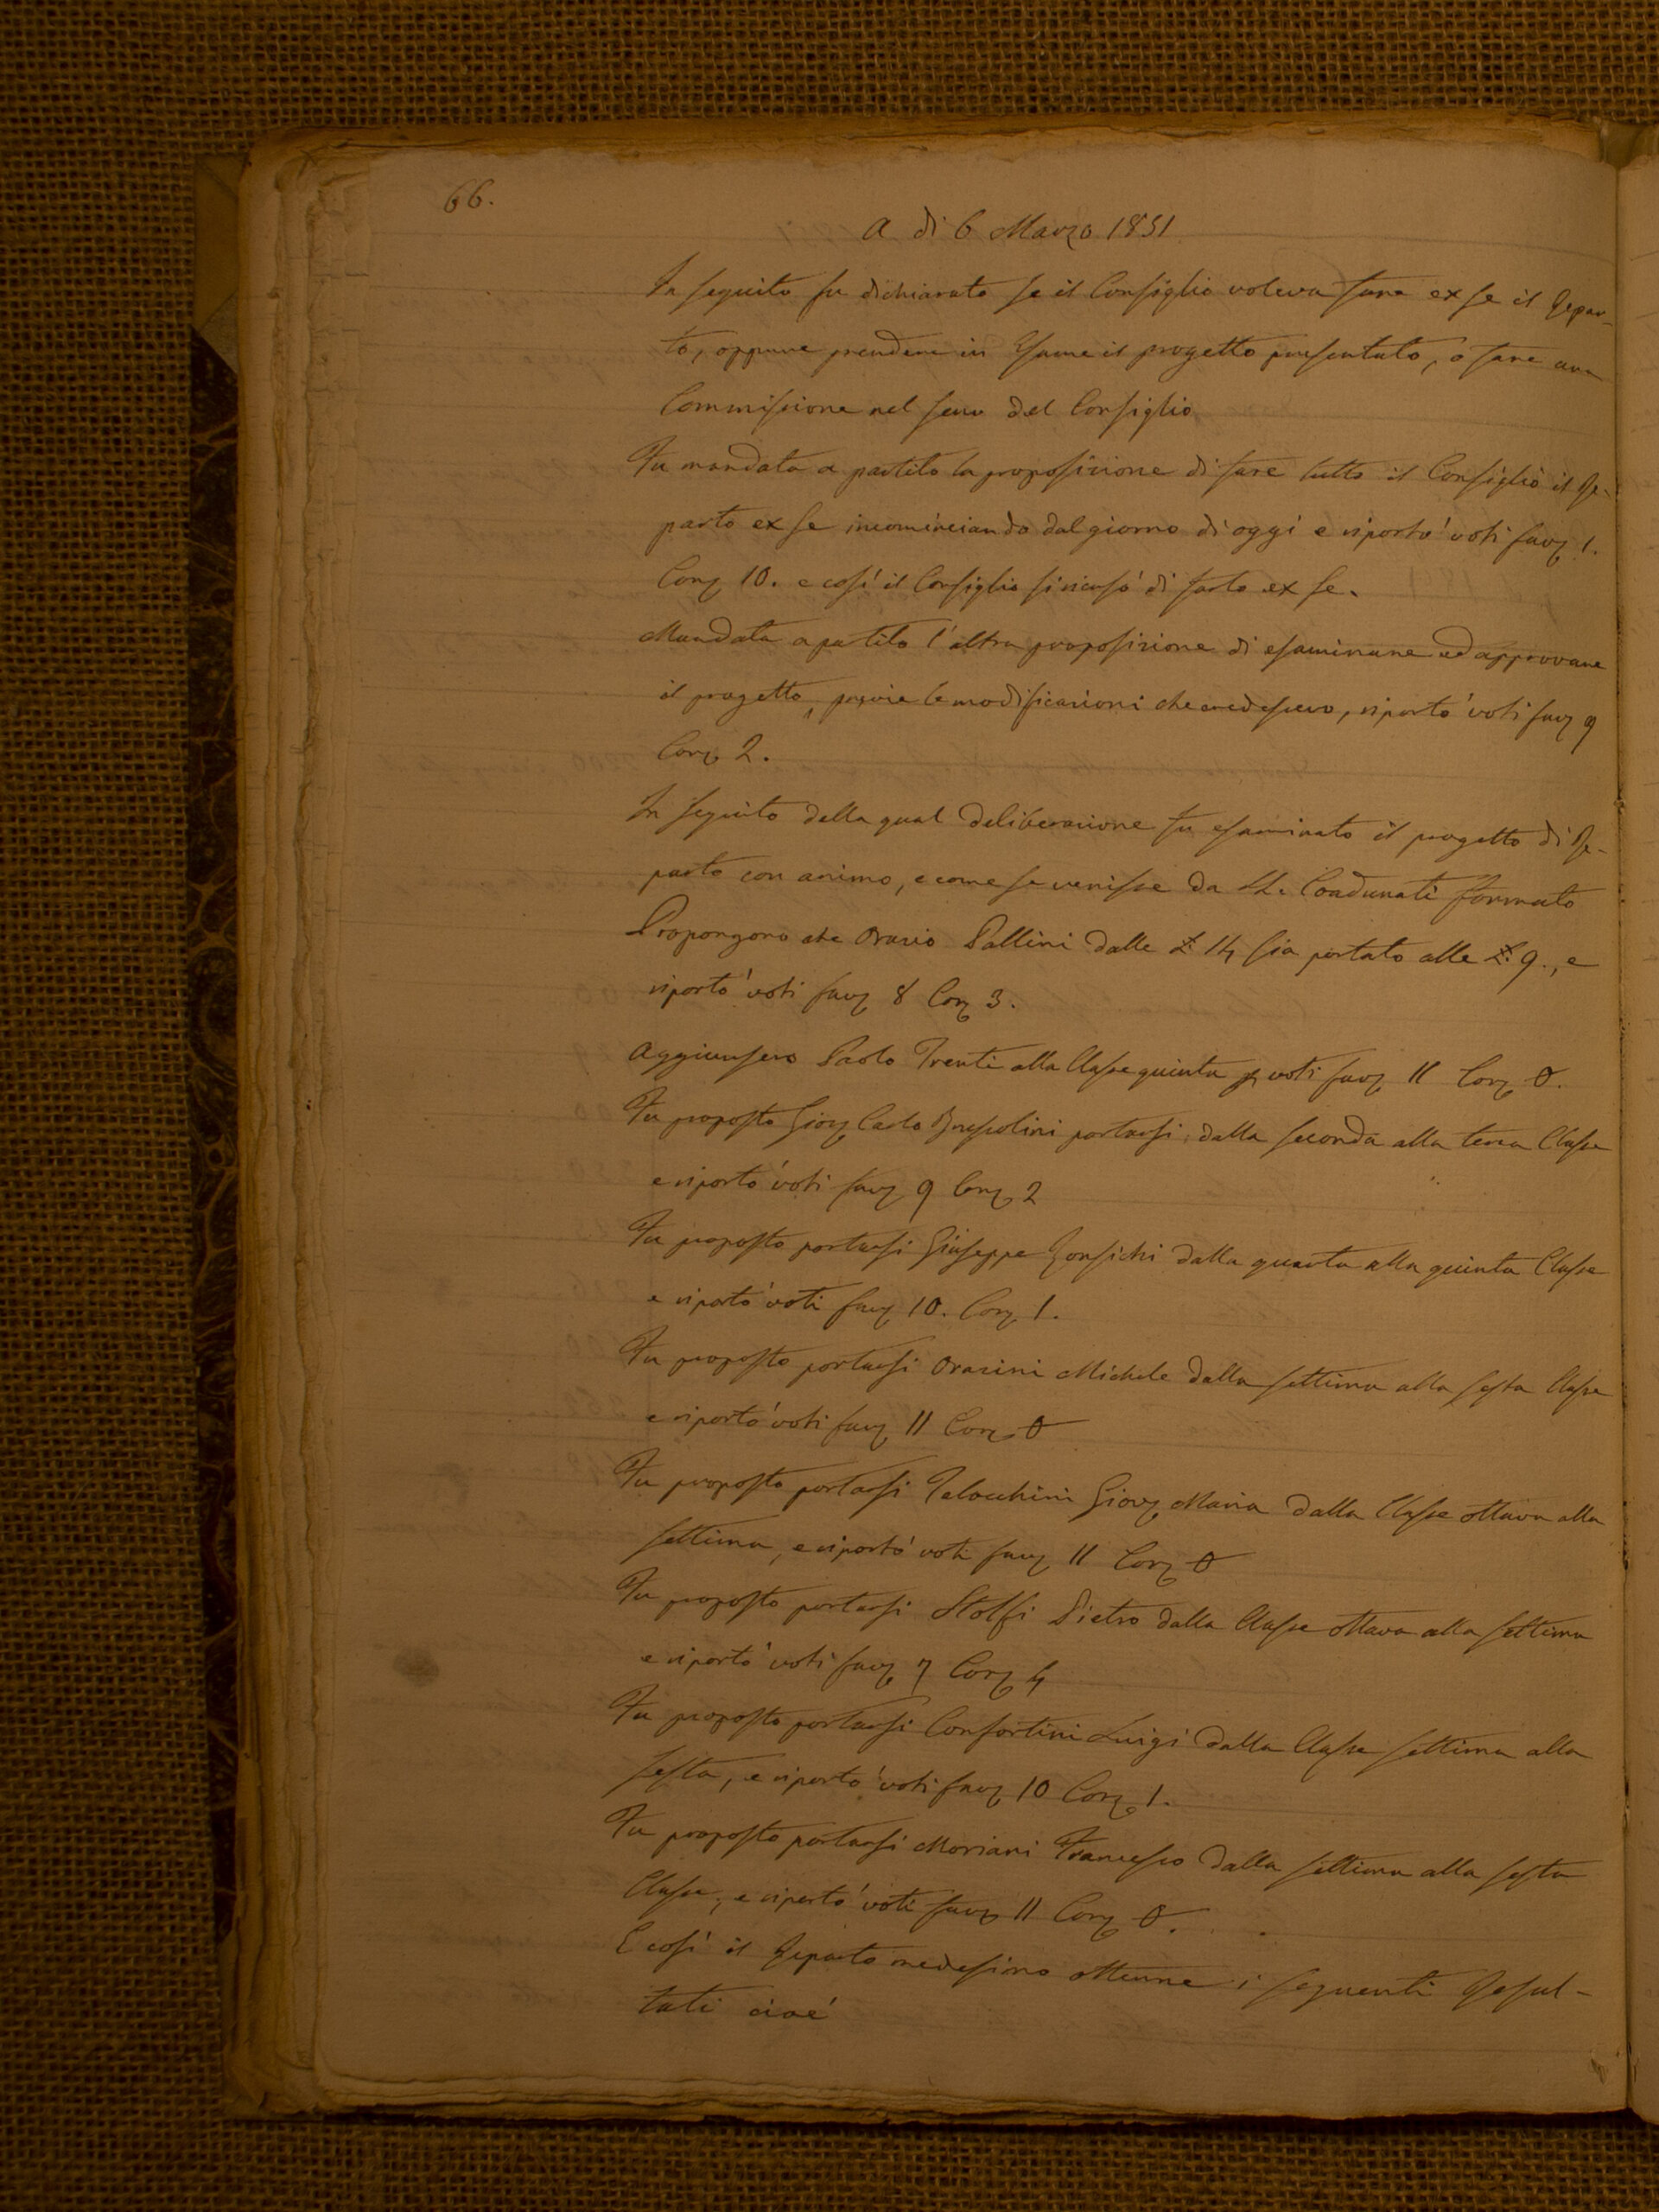 66.
A dì 6 Marzo 1851
In seguito fu dichiarato se il Consiglio voleva fare ex se il Repar-
to, oppure prendere in Esame il progetto presentato, o fare una
Commissione nel seno del Consiglio
Fu mandata a partito la proposizione di fare tutto il Consiglio il Re-
parto ex se incominciando dal giorno di oggi e riportò voti favi 1.
Conj 10. e così il Consiglio si ricusò di farlo ex se.
Mandata a partito l'altra proposizione di esaminare ed approvare
il progetto, previe le modificazioni che credessero, riportò voti favj 9
Conj 2.
In seguito della qual deliberazione fu esaminato il progetto di Re-
parto con animo, e come se venisse da LL. Coadunati formato
Propongono che Orazio Pallini dalle £ 14 sia portato alle £. 9., e
riportò voti favj 8 Conj 3.
Aggiunsero Paolo Trenti alla Classe quinta p voti favj 11 Conj 0.
Fu proposto Giovj Carlo portarsi dalla seconda alla terza Classe
e riportò voti favj 9 Conj 2
Fu proposto portarsi Giuseppe dalla quarta alla quinta Classe
e riportò voti favj 10. Conj 1.
Fu proposto portarsi Orazini Michele dalla settima alla sesta Classe
e riportò voti favj 11 Conj 0
Fu proposto portarsi Giovj Maria dalla Classe ottava alla
settima, e riportò voti favj 11 Conj 0
Fu proposto portarsi Stolfi Pietro dalla Classe ottava alla settima
e riportò voti favj 7 Conj 4
Fu proposto portarsi Confortini Luigi dalla Classe settima alla
sesta, e riportò voti favj 10 Conj 1.
Fu proposto portarsi Moriani Francesco dalla settima alla sesta
Classe, e riportò voti favj 11 Conj 0.
E così il Reparto medesimo ottenne i seguenti Resul-
tati cioè